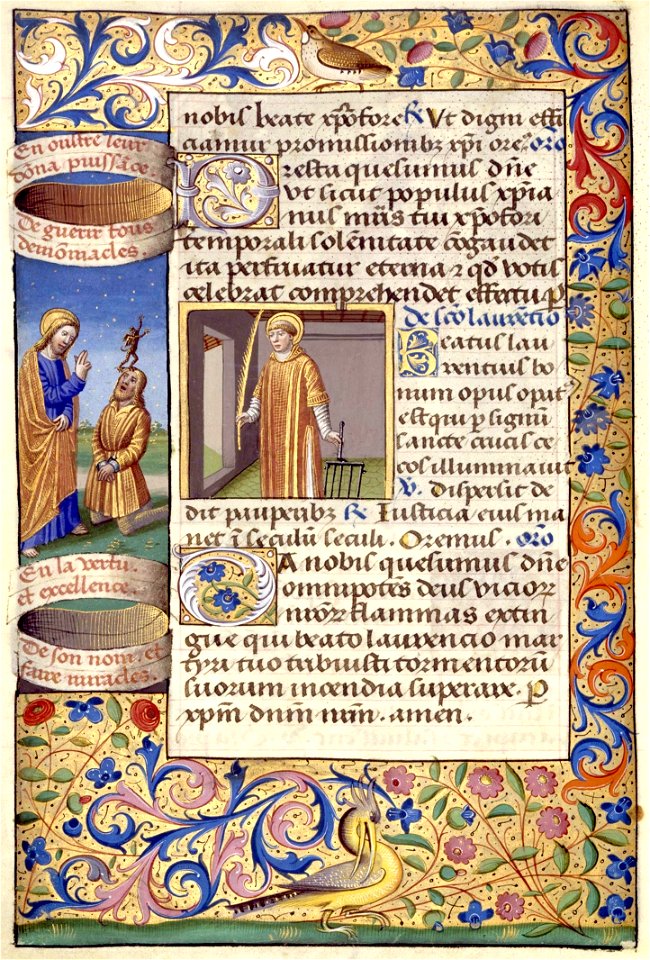 En oultre leur
dona puissãce.
De guerir tous
demoniacles.
En la vertu.
et excellence.
De son nom. et
faire miracles.
nobis beate xp̄ofore ℟ Vt digni effi
ciamur promissionibz xp̄i ore͞. oro͞
Presta quesumus dn̄e
vt sicut populus xp̄ia
nus mr̄is tui xp̄ofori
temporali solẽnitate cõgaudet
ita perfruatur eterna ⁊ qd̄ votis
celebrat comprehendet effectu p
de sc̄o laurencio
Beatus lau
rentius bo
num opus opat⁹
est qui p signũ
sancte crucis ce
cos illuminauit
℣. dispersit de
dit pauperibz ℟ Iusticia eius ma
net ĩ seculũ seculi. Oremus. oro͞
DA nobis quesumus dn̄e
omnipotẽs deus vicioꝝ
nr̄oꝝ flammas extin
gue qui beato laurencio mar
tyri tuo tribuisti tormentorũ
suorum incendia superare. p
xp̄m dn̄m nr̄m. amen.